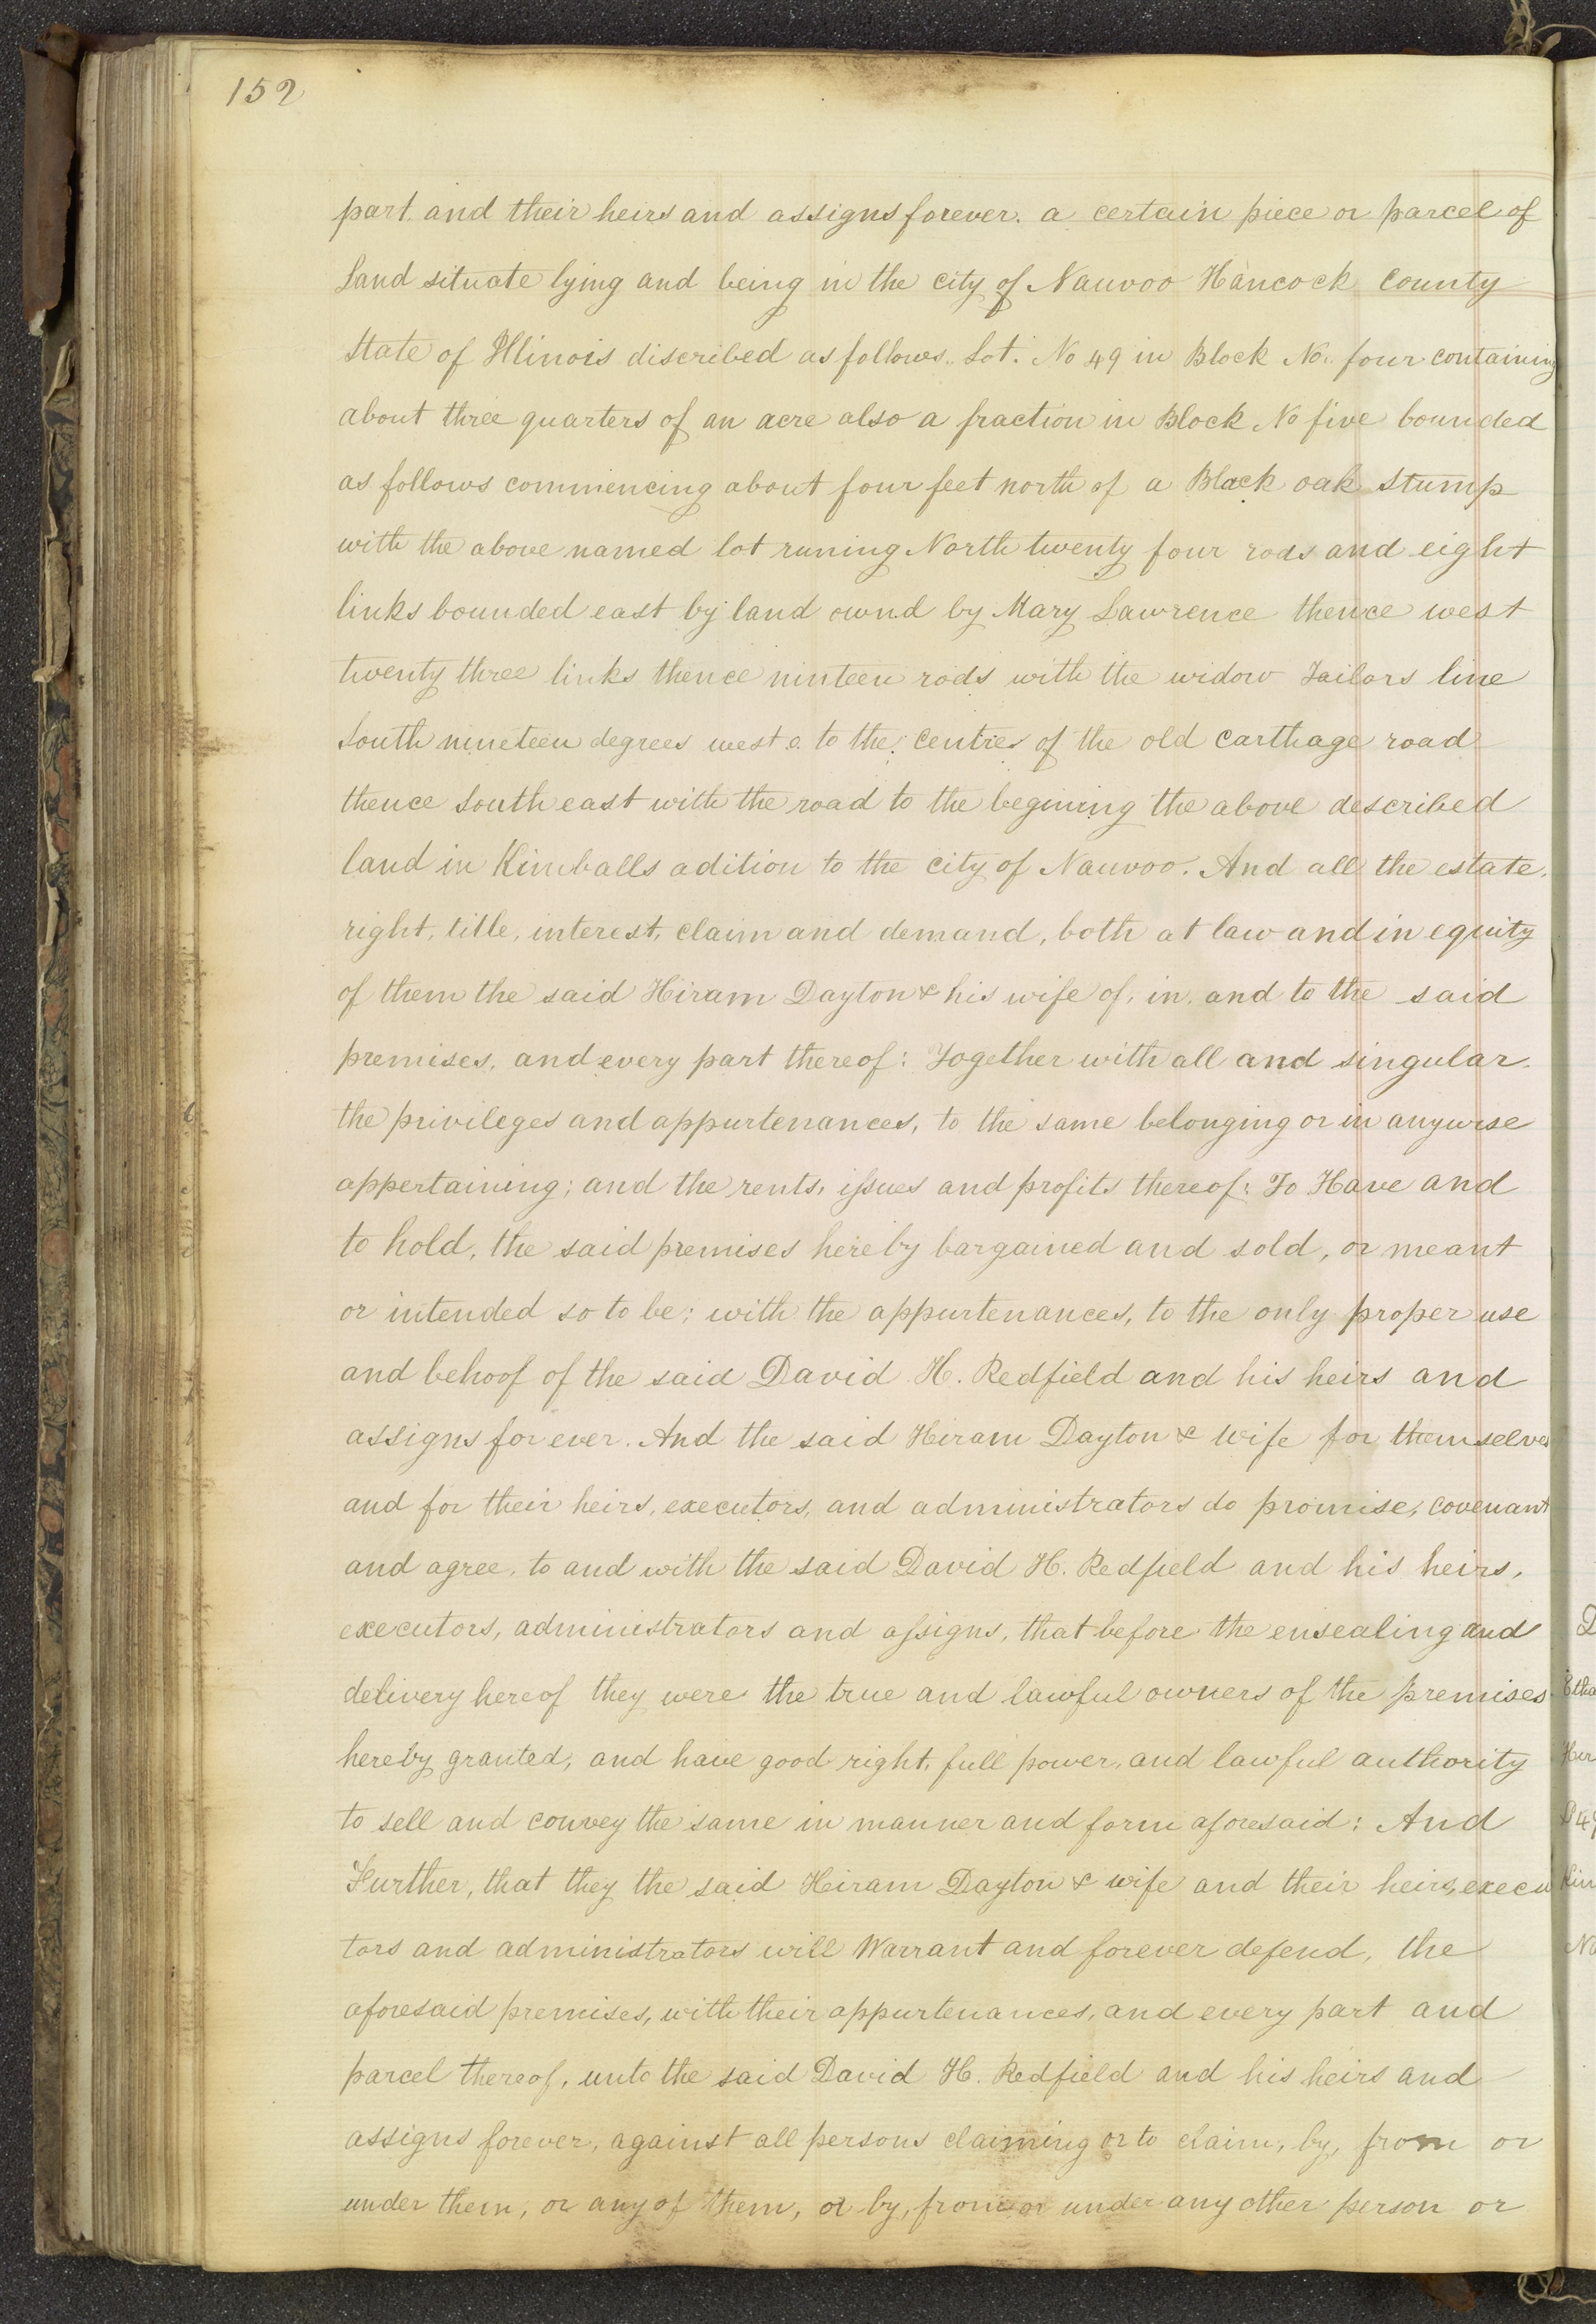 152
part. and their heirs and assigns forever. a certain piece or parcel of
Land situate lying and being in the city of Nauvoo Hancock County
State of Illinois discribed as follows.. Lot. No 49 in Block No. four containing
about three quarters of an acre also a fraction in Block No five bounded
as follows commencing about four feet north of a Black oak stump
with the above named lot runing North twenty four rods and eight
links bounded east by land ownd by Mary Lawrence thence west
twenty three links thence ninteen rods with the widow Tailors line
South nineteen degrees west to the centre of the old carthage road
thence South east with the road to the begining the above described
land in Kimballs adition to the city of Nauvoo. And all the estate.
right, title, interest, claim and demand, both at law and in equity
of them the said Hiram Dayton & his wife of, in, and to the said
premises, and every part thereof: Together with all and singular.
the privileges and appurtenances, to the same belonging or in anywise
appertaining; and the rents, issues and profits thereof: To Have and
to hold, the said premises hereby bargained and sold, or meant
or intended so to be; with the appurtenances, to the only proper use
and behoof of the said David H. Redfield and his heirs and
assigns for ever. And the said Hiram Dayton & wife for themselves
and for their heirs, executors, and administrators do promise, covenant
and agree, to and with the said David H. Redfield and his heirs,
executors, administrators and assigns, that before the ensealing and
delivery hereof they were the true and lawful owners of the premises
hereby granted, and have good right, full power, and lawful authority
to sell and convey the same in manner and form aforesaid: And
Further, that they the said Hiram Dayton & wife and their heirs, execu
tors and administrators will Warrant and forever defend, the
aforesaid premises, with their appurtenances, and every part and
parcel thereof, unto the said David H. Redfield and his heirs and
assigns forever, against all persons claiming or to claim, by, from or
under them, or any of them, or by, from or under any other person or